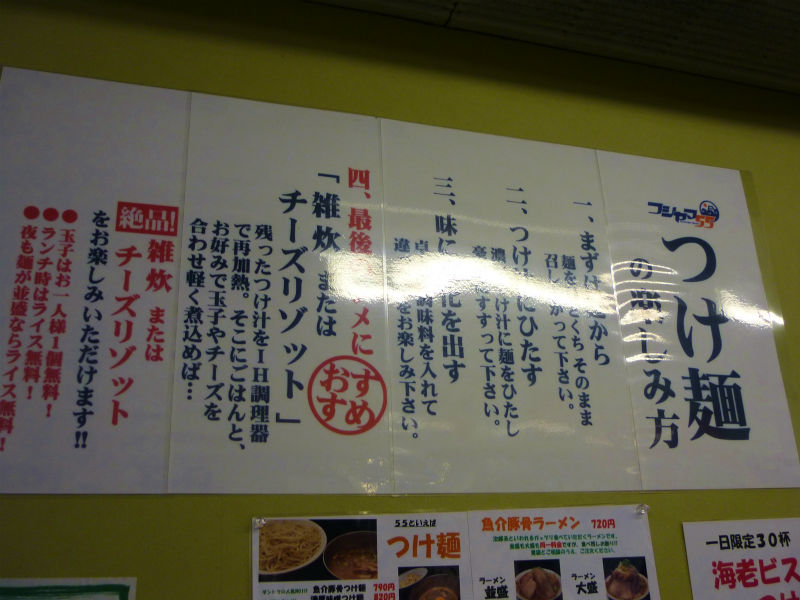 フジヤマ55
つけ麺
の楽しみ方
一、まずは麺から
麺をひとくち そのまま
召し上がって下さい。
二、つけ汁にひたす
つけ汁に麺をひたし
すすって下さい。
三、味に変化を出す
調味料を入れて
をお楽しみ下さい。
四、最後
メに
「雑炊 または
チーズリゾット」
おすすめ
残ったつけ汁をIH調理器
で再加熱。そこにごはんと、
お好みで玉子やチーズを
合わせ軽く煮込めば…
絶品!
雑炊 または
チーズリゾット
をお楽しみいただけます!!
●玉子はお一人様1個無料!
●ランチ時はライス無料!
●夜も麺が並盛ならライス無料!
55といえば
つけ麺
魚介豚骨つけ麺 790円
濃厚味噌つけ麺 820円
魚介豚骨ラーメン 720円
ラーメン
並盛
ラーメン
大盛
一日限定30杯
海老ビス